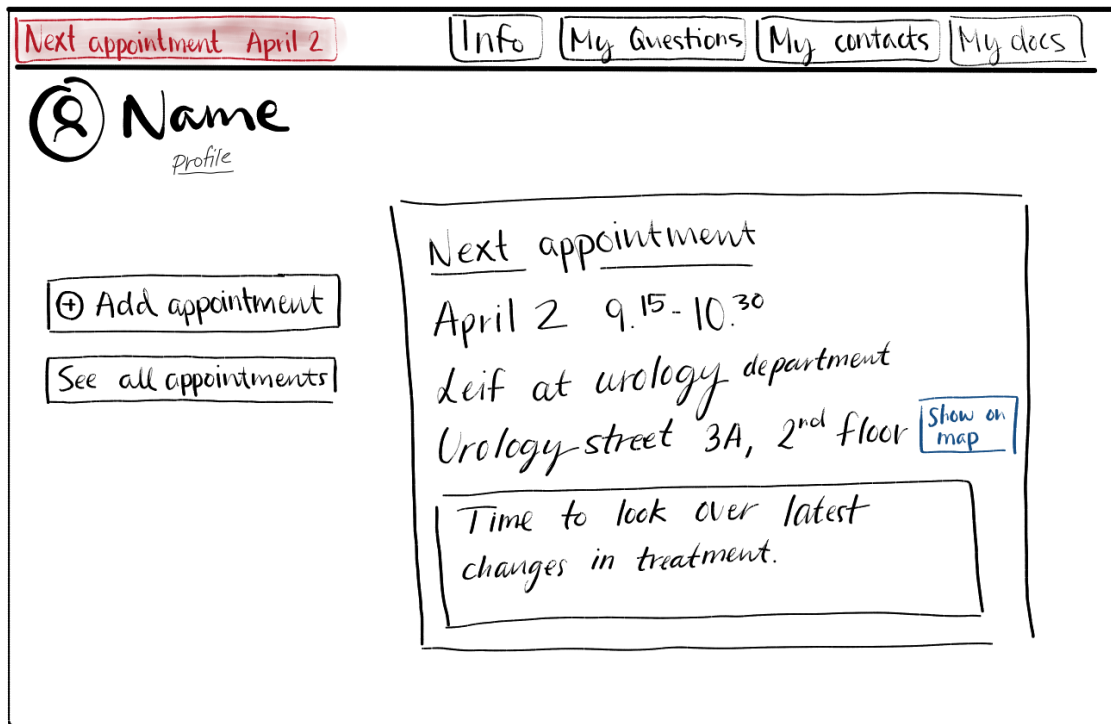 Next appointment April 2
Info
My Questions
My contacts
My docs
Name
Profile
Add appointment
See all appointments
Next appointment
April 2 9.15-10.30
Leif at urology department
Urology street 3A, 2nd floor
Show on
map
Time to look over latest
changes in treatment.